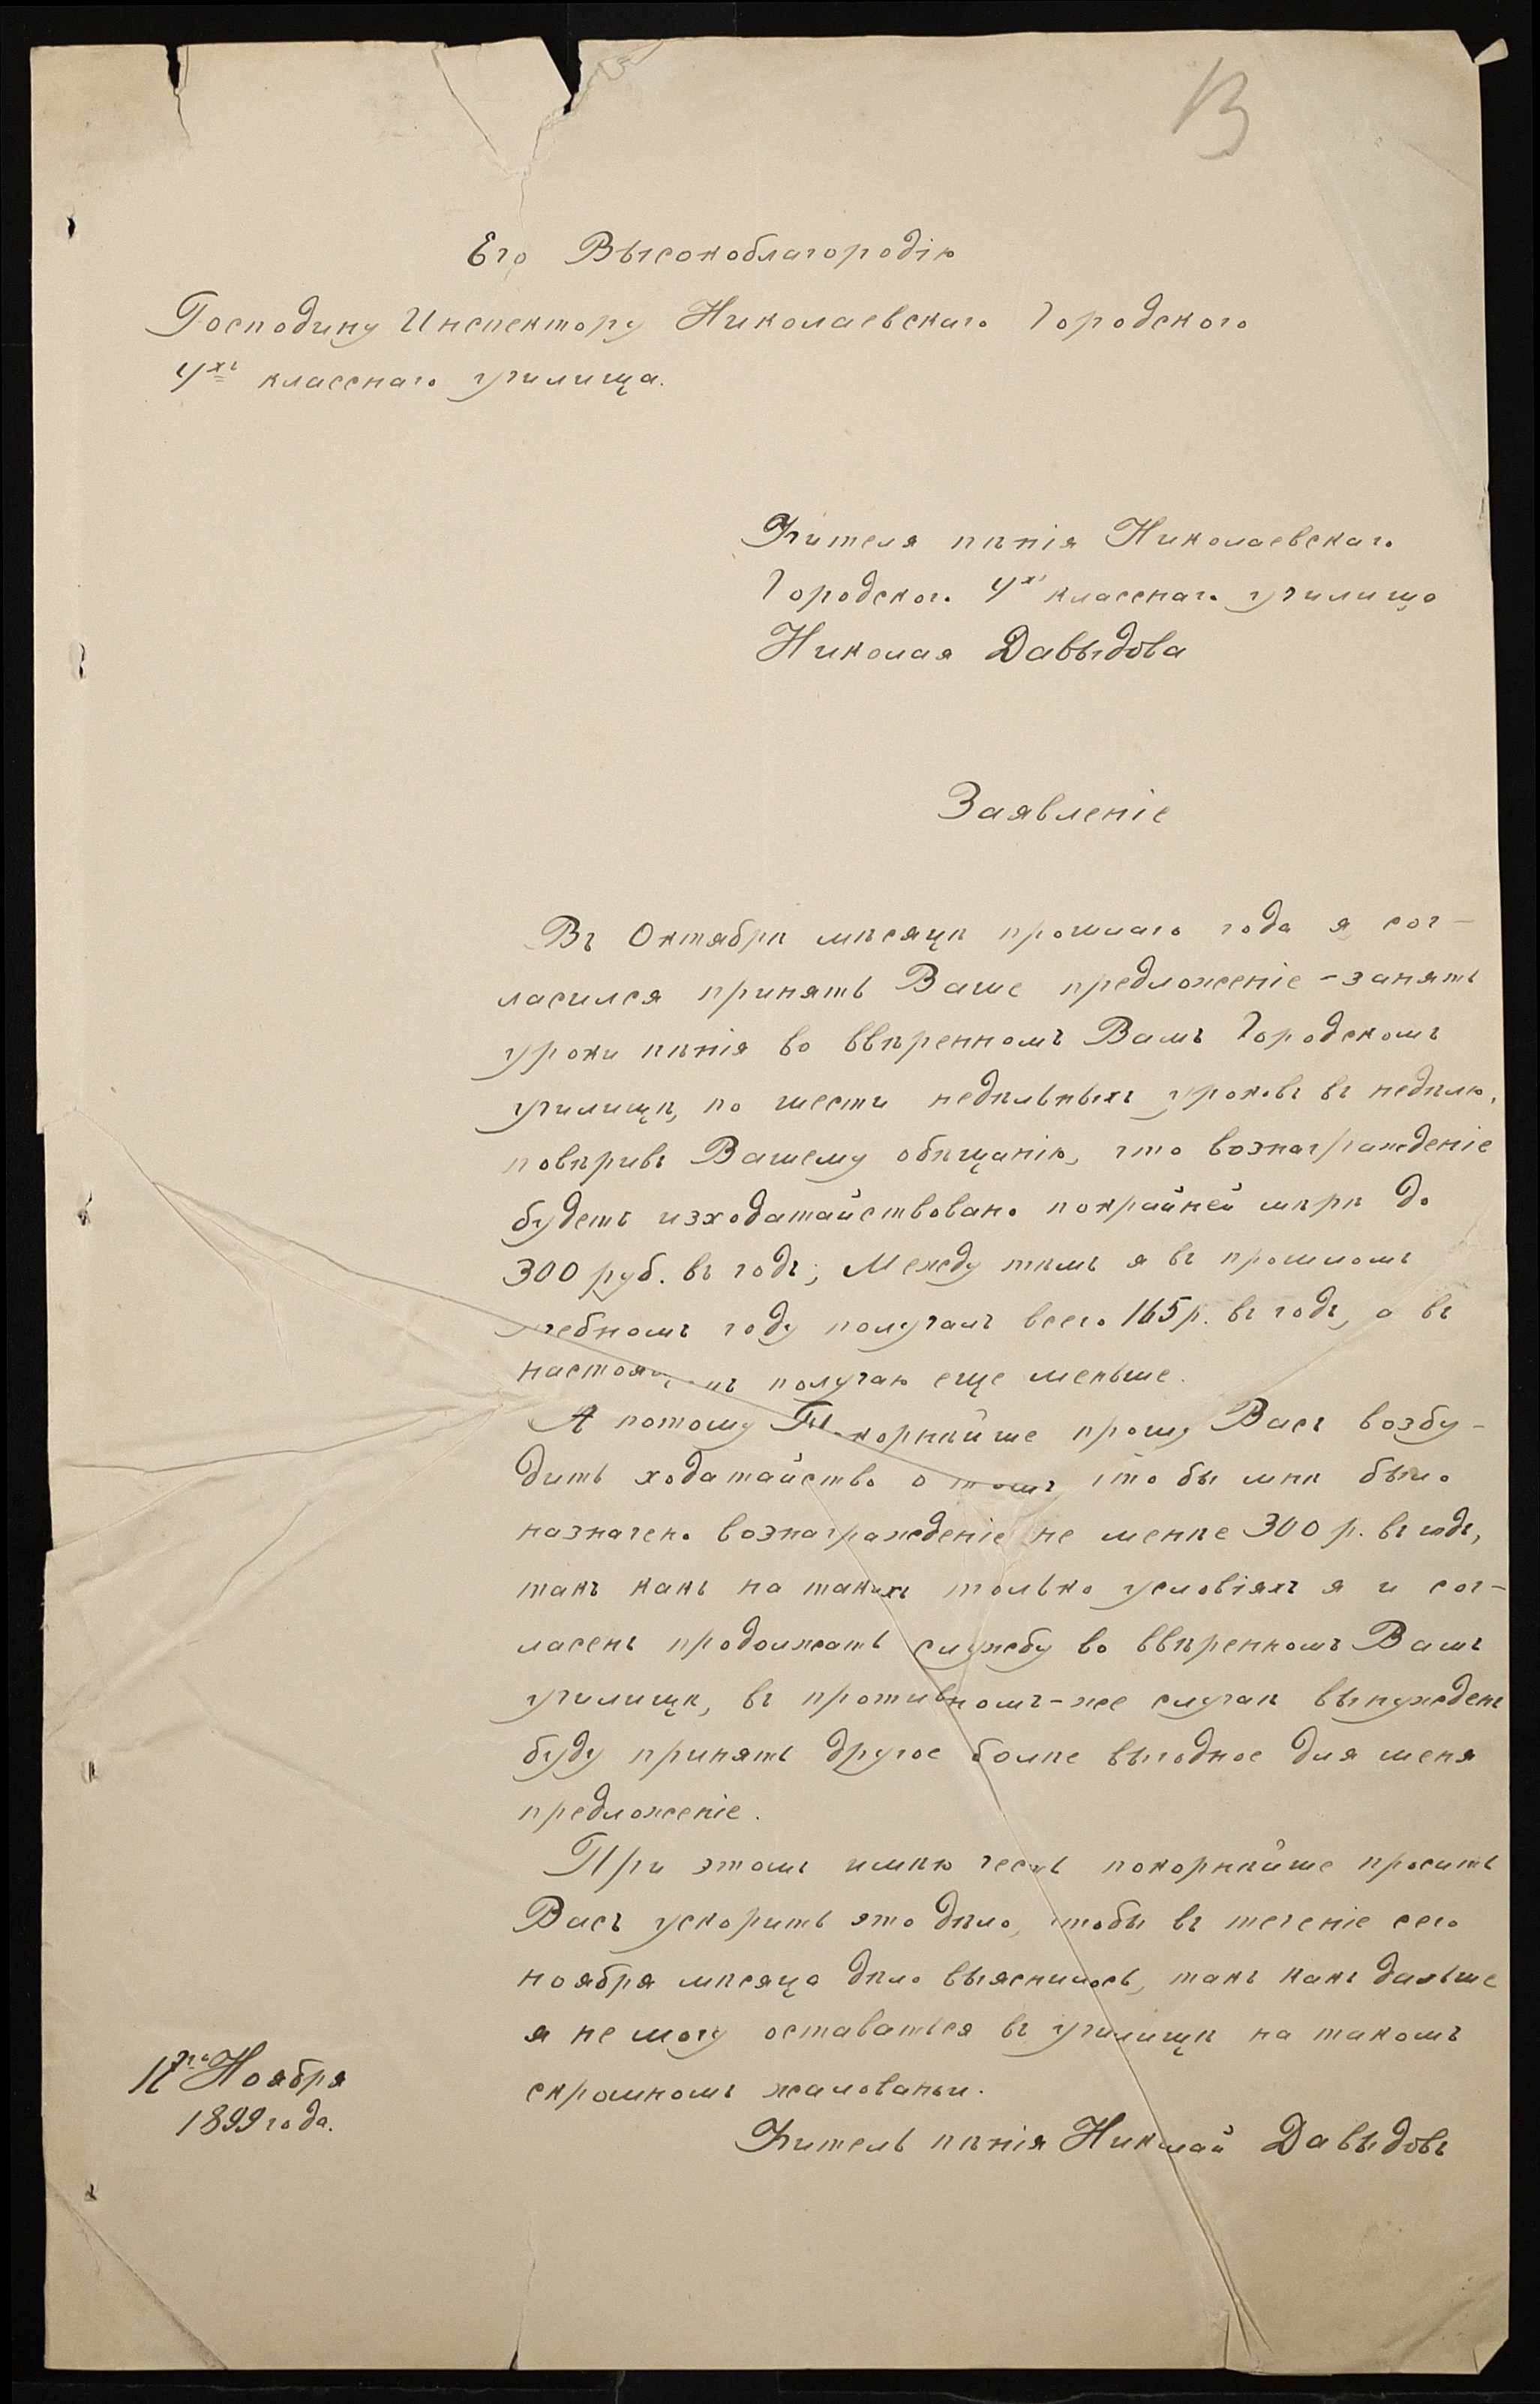 13
Его Высокоблагородію
Господину Инспектору Николаевскаго Городского
4хъ класснаго училища.
Учителя пѣнія Николаевскаго
Городского 4хъ класснаго училища
Николая Давыдова
Заявленіе
Въ Октябрѣ мѣсяцѣ прошлаго года я сог-
ласился принять Ваше предложеніе - занять
уроки пѣнія во ввѣренномъ Вамъ Городскомъ
училищѣ, по шести недѣльныхъ уроковъ въ недѣлю,
повѣривъ Вашему обѣщанію, что вознагражденіе
будетъ изходатайствовано покрайней мѣрѣ до
300 руб. въ годъ; Между тѣмъ я въ прошломъ
учебномъ году получалъ всего 165 р. въ годъ, а въ
получаю еще меньше.
А потому Покорнѣйше прошу Васъ возбу-
дить ходатайство о томъ что бы мнѣ было
назначено вознагражденіе не менѣе 300 р. въ годъ,
такъ какъ на такихъ только условіяхъ я и сог-
ласенъ продолжать службу во ввѣренномъ Вамъ
училищѣ, въ противномъ-же случаѣ вынужденъ
буду принять другое болѣе выгодное для меня
предложеніе.
При этомъ имѣю честь покорнѣйше просить
Васъ ускорить это дѣло, чтобы въ теченіе сего
ноября мѣсяца дѣло выяснилось, такъ какъ дальше
я не могу оставаться въ училищѣ на такомъ
скромномъ жалованьи.
Ноября
1899 года.
Учитель пѣнія Николай Давыдовъ